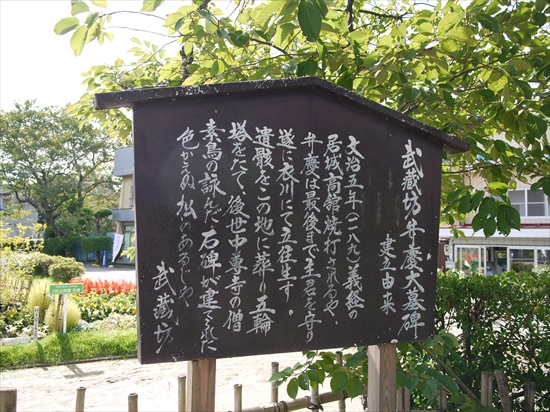 武蔵坊弁慶大墓碑
建立由来
文治五年(一一八九)義経の
居城高舘焼打さるるや、
弁慶は最後まで主君を守り
遂に衣川にて立往生す。
遺骸をこの地に葬り五輪
塔をたて、後世中尊寺の僧
素鳥の詠んだ石碑が建てられた
色かえぬ松のあるじや
武蔵坊